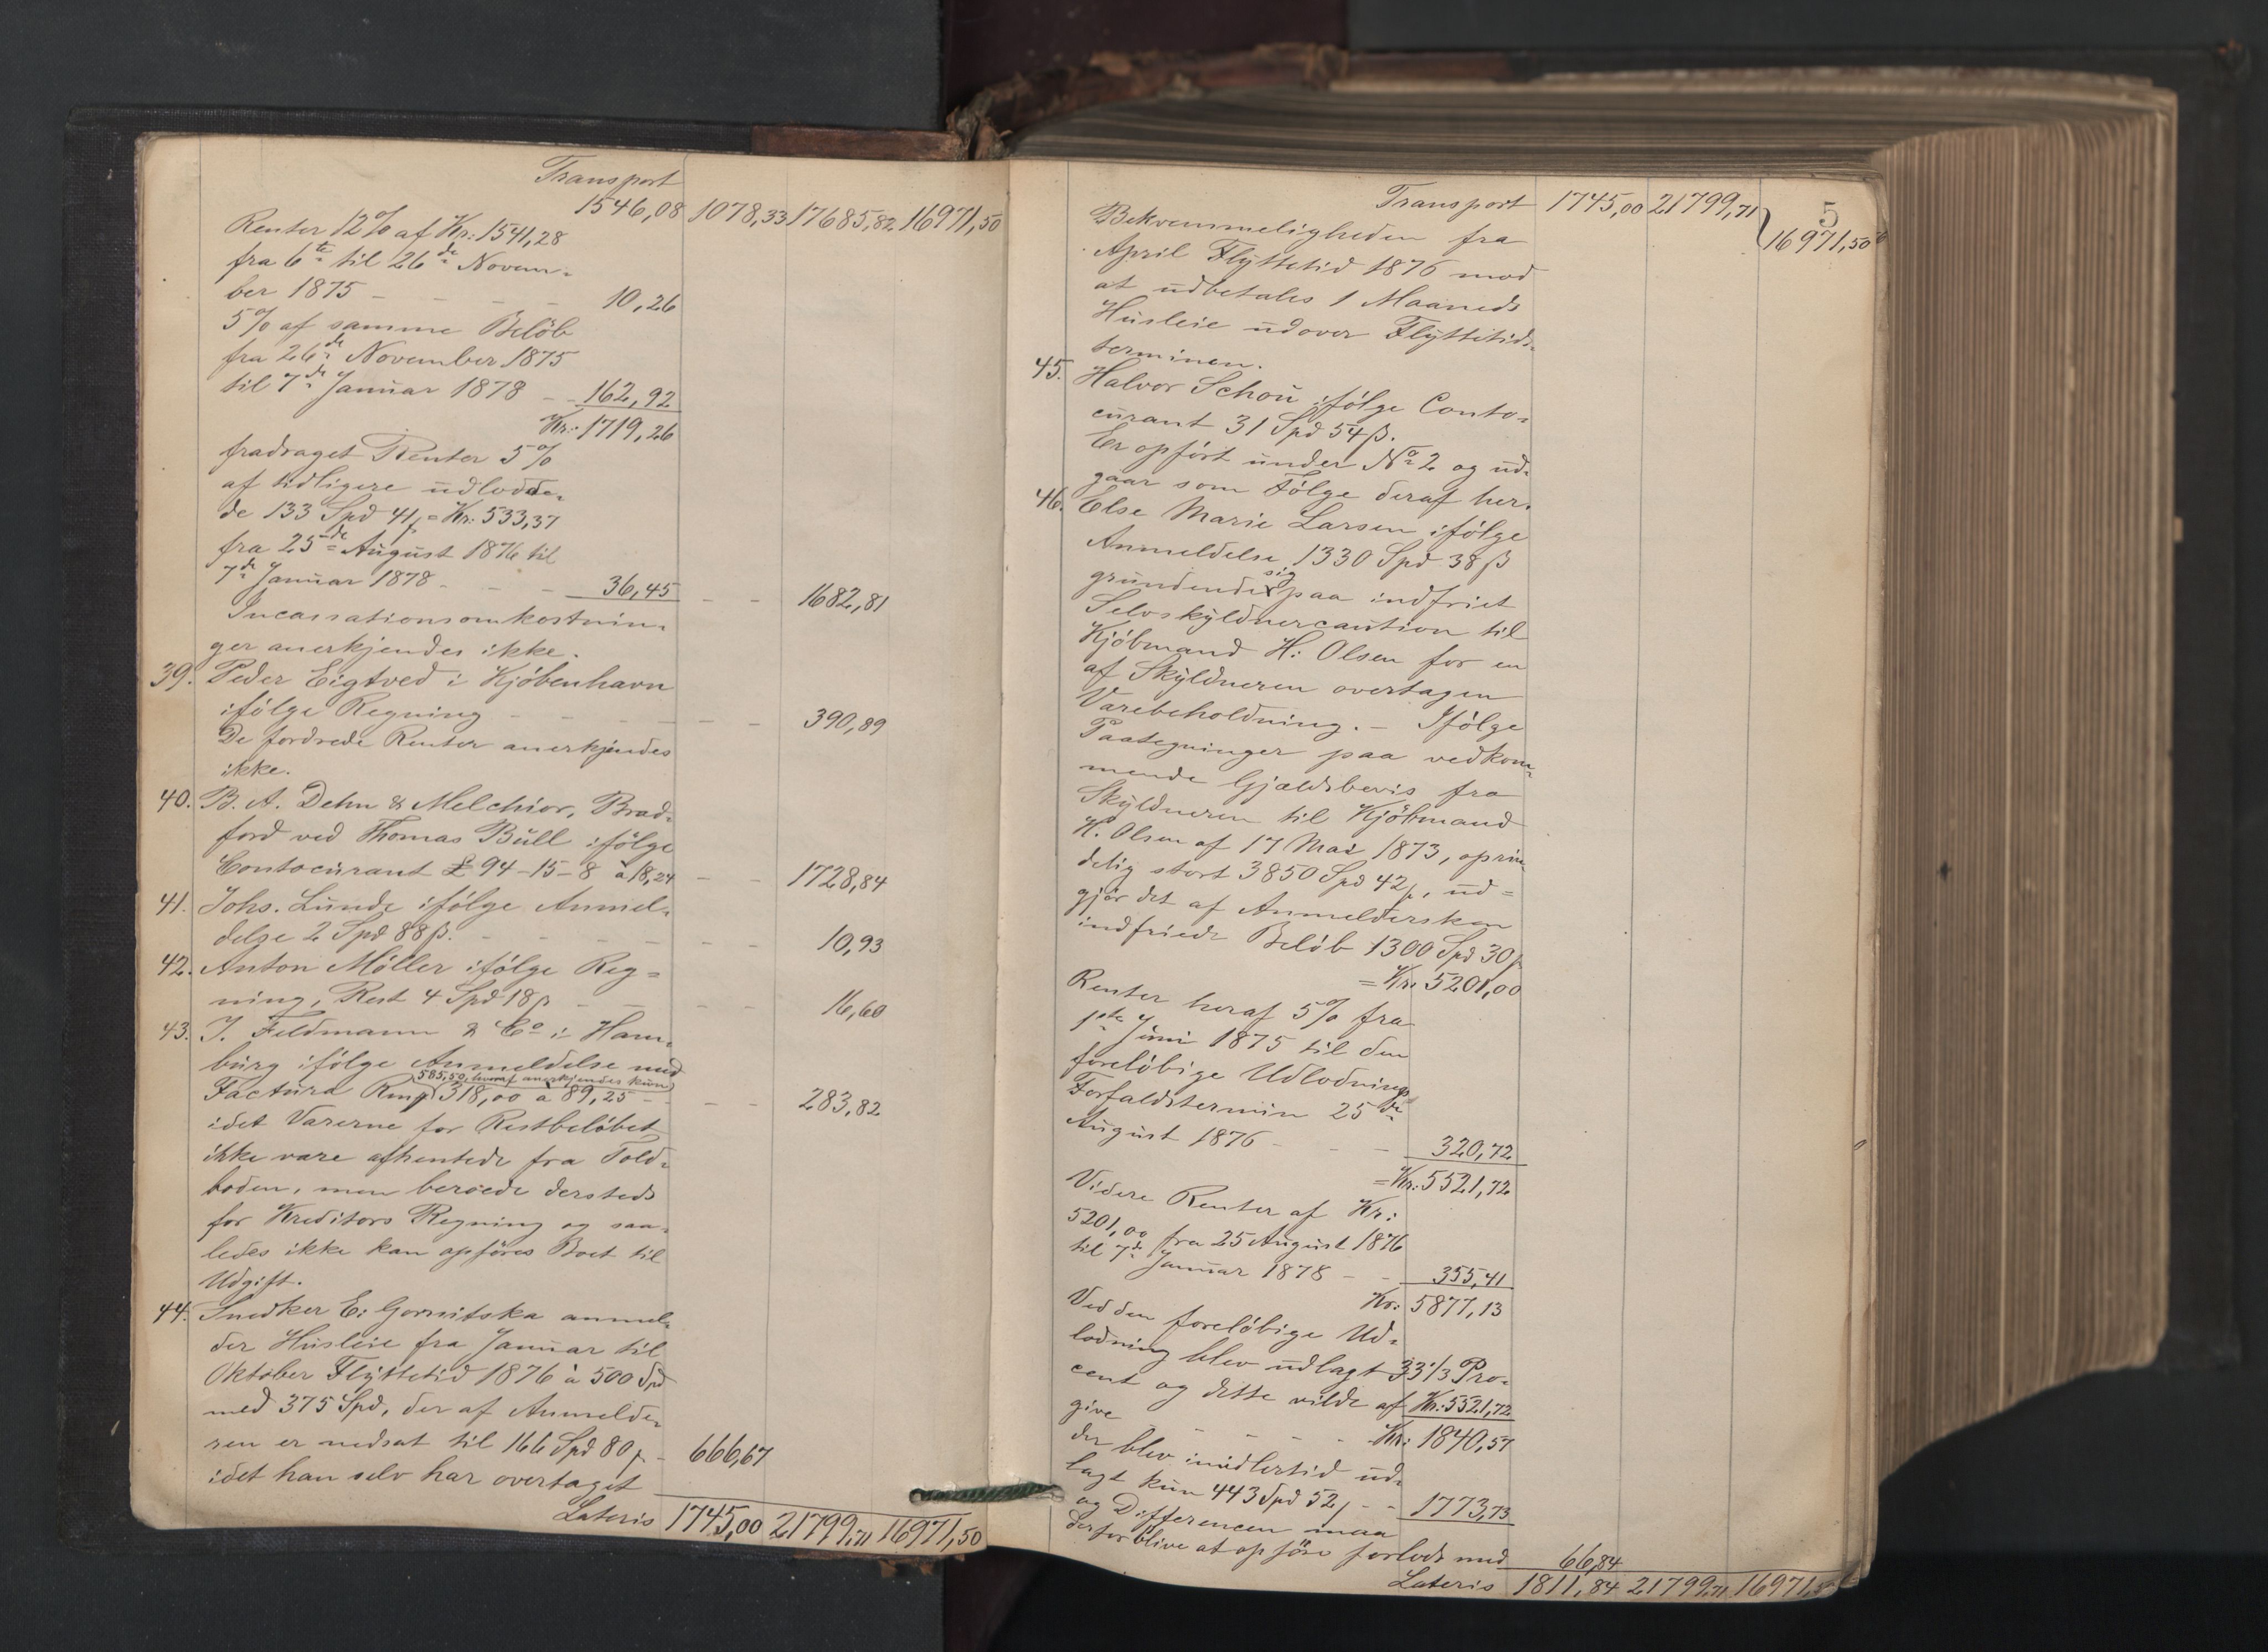 Transport
1546,08 1078,33 17685,82 16971,50
Renter 12% af Kr: 1541,28
fra 6te til 26de Novem-
ber 1875 - - - - 10,26
5% af samme Belöb
fra 26de November 1875
til 7de Januar 1878 - - 162,92
Kr: 1719,26
fradraget Renter 5%
af tidligere udlodde-
de 133 Spd 41 β = Kr: 533,37
fra 25de August 1876 til
7de Januar 1878 - - - 36,45 - - 1682,81
Incassationsomkostnin-
ger anerkjendes ikke.
39. Peder Eigtved i Kjöbenhavn
ifölge Regning - - - - - - 390,89
De fordrede Renter anerkjendes
ikke.
40. B. A. Dehn & Melchior, Brad-
ford ved Thomas Bull ifölge
Contocurant £ 94-15-8 à 18,24 - - 1728,84
41. Johs. Lunde ifölge Anmel-
delse 2 Spd 88 β. - - - - - - 10,93
42. Anton Möller ifölge Reg=
ning, Rest 4 Spd 18 β - - - - 16,60
43. J. Feldmann & Co i Ham-
burg ifölge Anmeldelse med
585,50, hvoraf anerkjendes kun
Factura Rmf 318,00 à 89,25 - - - - 283,82
idet Varerne for Restbelöbet
ikke vare afhentede fra Told-
boden, men beroede dersteds
for Kreditors Regning og saa-
ledes ikke kan opföres Boet til
Udgift.
44. Snedker E. Gornitska anmel-
der Husleie fra Januar til
Oktober Flyttetid 1876 à 500 Spd
med 375 Spd, der af Anmelde-
ren er nedsat til 166 Spd 80 β - 666,67
idet han selv har overtaget
Lateris 1745,00 21799,71 16971,50
5
Transport 1745,00 21799,71 16971,50
Bekvemmeligheden fra
April Flyttetid 1876 mod
at udbetales 1 Maaneds
Husleie udover Flyttetids-
terminen.
45. Halvor Schou ifölge Conto-
curant 31 Spd 54 β.
Er opfört under No 2 og ud-
gaar som Fölge deraf her.
46. Else Marie Larsen ifölge
Anmeldelse 1330 Spd 38 β
grundende sig paa indfriet
Selvskyldnercaution til
Kjöbmand H: Olsen for en
af Skyldneren overtagen
Varebeholdning. - Ifölge
Paategninger paa vedkom-
mende Gjældsbevis fra
Skyldneren til Kjöbmand
H. Olsen af 17 Mai 1873, oprin-
delig stort 3850 Spd 42 β, ud=
gjör det af Anmeldersken
indfriede Belöb 1300 Spd 30 β
= Kr: 5201,00
Renter heraf 5% fra
1ste Juni 1875 til den
foreløbige Udlodnings
Forfaldstermin 25de
August 1876 - - - 320,72
= Kr: 5521,72
Videre Renter af Kr:
5201,00 fra 25 August 1876
til 7de Januar 1878 - - 355,41
Kr: 5877,13
Ved den forelöbige Ud-
lodning blev udlagt 33 1/3 Pro-
cent og dette vilde af Kr: 5521,72
give - - - - Kr: 1840,57
der blev imidlertid ud-
lagt kun 443 Spd 52 β - - 1773,73
og Differencen maa
derfor blive at opföre forlods med 66,84
Lateris 1811,84 21799,71 16971,50